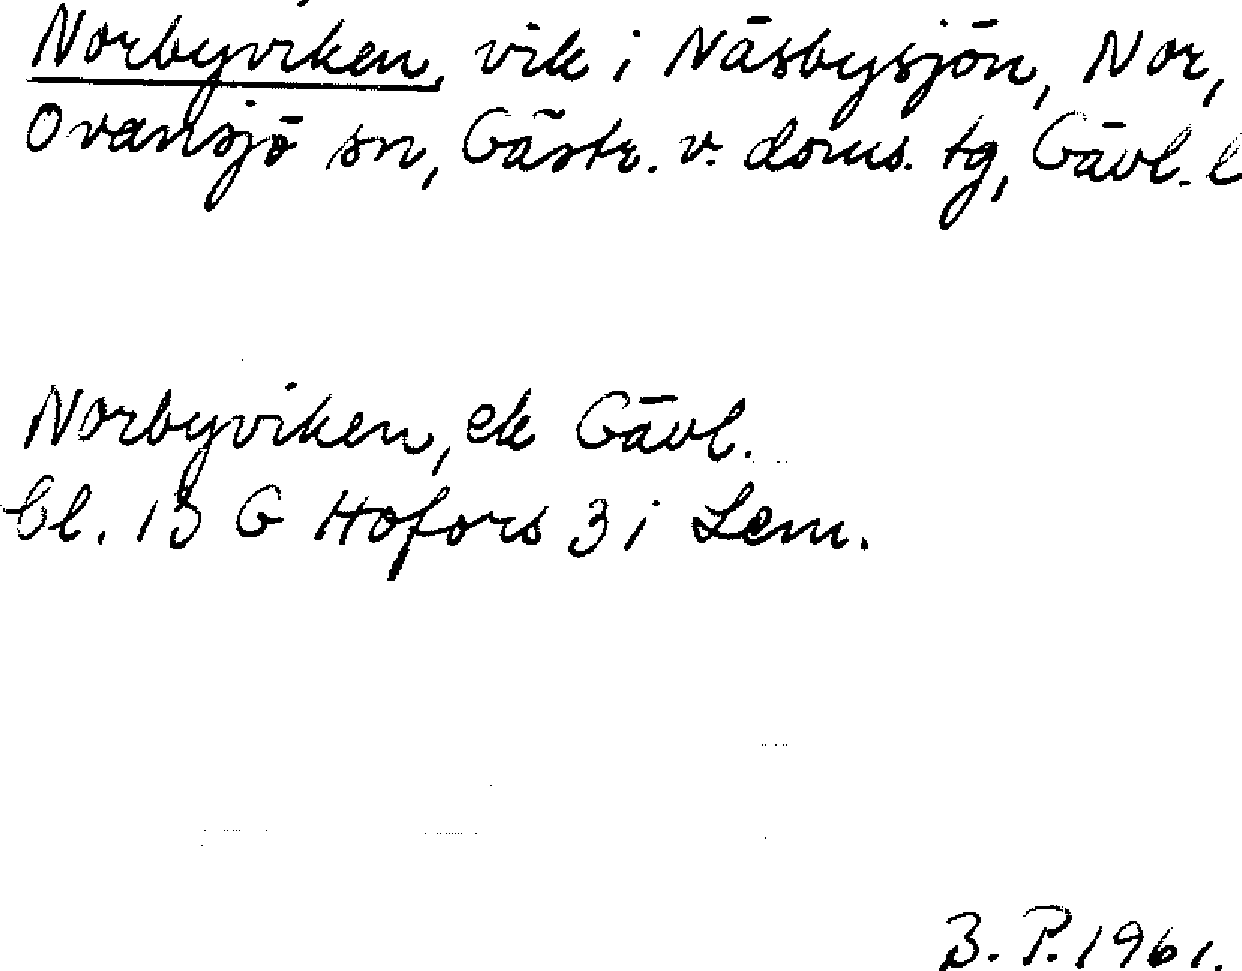 Norbyviken, vik i Näsbysjön, Nor,
Ovansjö sn, Gästr. v. doms. tg, Gävl. l
Norbyviken, ek Gävl.
bl. 13 G Hofors 3 i Lem.
B. P. 1961.